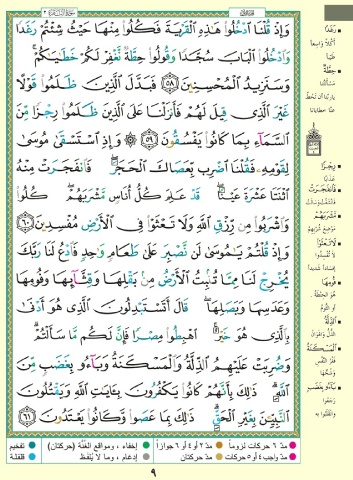 وَإِذْ قُلْنَا ٱدْخُلُوا۟ هَٰذِهِ ٱلْقَرْيَةَ فَكُلُوا۟ مِنْهَا حَيْثُ شِئْتُمْ رَغَدًا
وَٱدْخُلُوا۟ ٱلْبَابَ سُجَّدًا وَقُولُوا۟ حِطَّةٌ نَّغْفِرْ لَكُمْ خَطَٰيَٰكُمْ ۚ
وَسَنَزِيدُ ٱلْمُحْسِنِينَ ٥٨ فَبَدَّلَ ٱلَّذِينَ ظَلَمُوا۟ قَوْلًا
غَيْرَ ٱلَّذِى قِيلَ لَهُمْ فَأَنزَلْنَا عَلَى ٱلَّذِينَ ظَلَمُوا۟ رِجْزًا مِّنَ
ٱلسَّمَآءِ بِمَا كَانُوا۟ يَفْسُقُونَ ٥٩ ۞ وَإِذِ ٱسْتَسْقَىٰ مُوسَىٰ
لِقَوْمِهِۦ فَقُلْنَا ٱضْرِب بِّعَصَاكَ ٱلْحَجَرَ ۖ فَٱنفَجَرَتْ مِنْهُ
ٱثْنَتَا عَشْرَةَ عَيْنًا ۖ قَدْ عَلِمَ كُلُّ أُنَاسٍ مَّشْرَبَهُمْ ۖ كُلُوا۟
وَٱشْرَبُوا۟ مِن رِّزْقِ ٱللَّهِ وَلَا تَعْثَوْا۟ فِى ٱلْأَرْضِ مُفْسِدِينَ ٦٠
وَإِذْ قُلْتُمْ يَٰمُوسَىٰ لَن نَّصْبِرَ عَلَىٰ طَعَامٍ وَٰحِدٍ فَٱدْعُ لَنَا رَبَّكَ
يُخْرِجْ لَنَا مِمَّا تُنۢبِتُ ٱلْأَرْضُ مِنۢ بَقْلِهَا وَقِثَّآئِهَا وَفُومِهَا
وَعَدَسِهَا وَبَصَلِهَا ۖ قَالَ أَتَسْتَبْدِلُونَ ٱلَّذِى هُوَ أَدْنَىٰ
بِٱلَّذِى هُوَ خَيْرٌ ۚ ٱهْبِطُوا۟ مِصْرًا فَإِنَّ لَكُم مَّا سَأَلْتُمْ ۗ
وَضُرِبَتْ عَلَيْهِمُ ٱلذِّلَّةُ وَٱلْمَسْكَنَةُ وَبَآءُو بِغَضَبٍ مِّنَ
ٱللَّهِ ۗ ذَٰلِكَ بِأَنَّهُمْ كَانُوا۟ يَكْفُرُونَ بِـَٔايَٰتِ ٱللَّهِ وَيَقْتُلُونَ
ٱلنَّبِيِّـۧنَ بِغَيْرِ ٱلْحَقِّ ۗ ذَٰلِكَ بِمَا عَصَوا۟ وَّكَانُوا۟ يَعْتَدُونَ ٦١
رَغَدًا
أكلًا واسعا
حِطَّةٌ
مسألتنا
عنا خطايانا
رِجْزًا
عذابا
فَٱنفَجَرَتْ
مَّشْرَبَهُمْ
لَا تَعْثَوْا۟
لا تفسدوا
فُومِهَا
هو الحنطة
أو الثوم
ٱلذِّلَّةُ
ٱلْمَسْكَنَةُ
فقر النفس
بَآءُو بِغَضَبٍ
رجعوا
مدّ ٦ حركات لزوماً مدّ ٢ أو ٤ أو ٦ جوازاً إخفاء، ومواقع الغنّة (حركتان) تفخيم
مدّ واجب ٤ أو ٥ حركات مدّ حركتان إدغام، وما لا يُلفظ قلقلة
٩